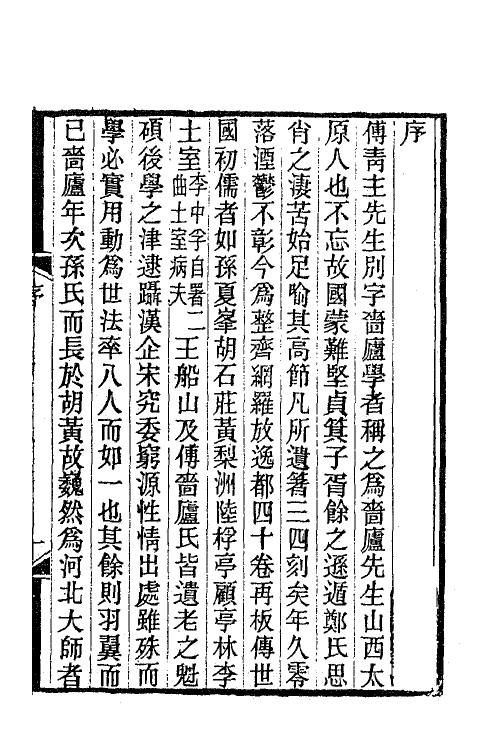 序
傅靑主先生別字嗇廬學者稱之爲嗇廬先生山西太
原人也不忘故國蒙難堅貞箕子胥餘之遜遁鄭氏思
肖之淒苦始足喻其高節凡所遺箸三四刻矣年久零
落湮鬱不彰今爲整齊網羅放逸都四十卷再板傳世
國初儒者如孫夏峯胡石莊黃梨洲陸桴亭顧亭林李
土室李中孚自署二曲土室病夫王船山及傅嗇廬氏皆遺老之魁
碩後學之津逮躡漢企宋究委窮源性情出處雖殊而
學必實用動爲世法率八人而如一也其餘則羽翼而
已嗇廬年次孫氏而長於胡黃故巍然爲河北大師者
序
一